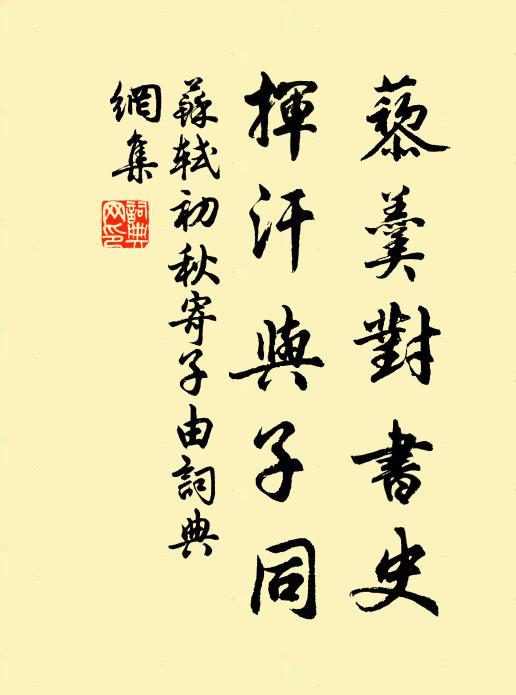 藜羹對書史
揮汗與子同
蘇軾初秋寄子由詞典
網集
詞典網印